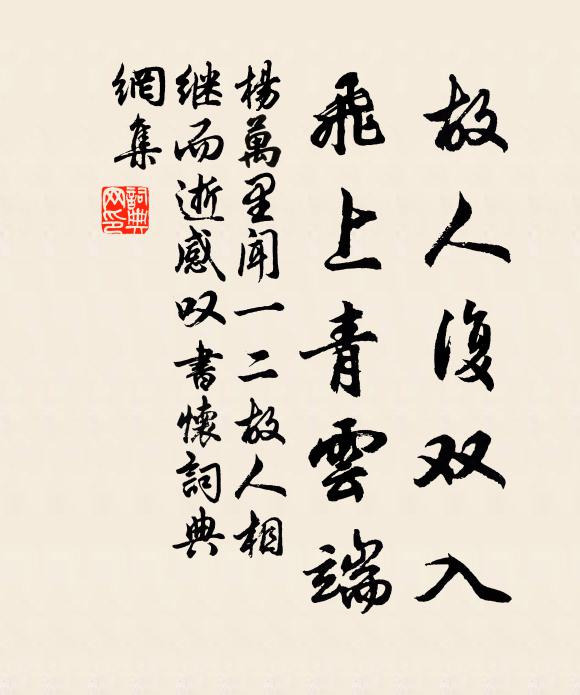 故人復双入
飛上青雲端
楊萬里闻一二故人相
继而逝感叹書懷詞典
網集
詞典
网印